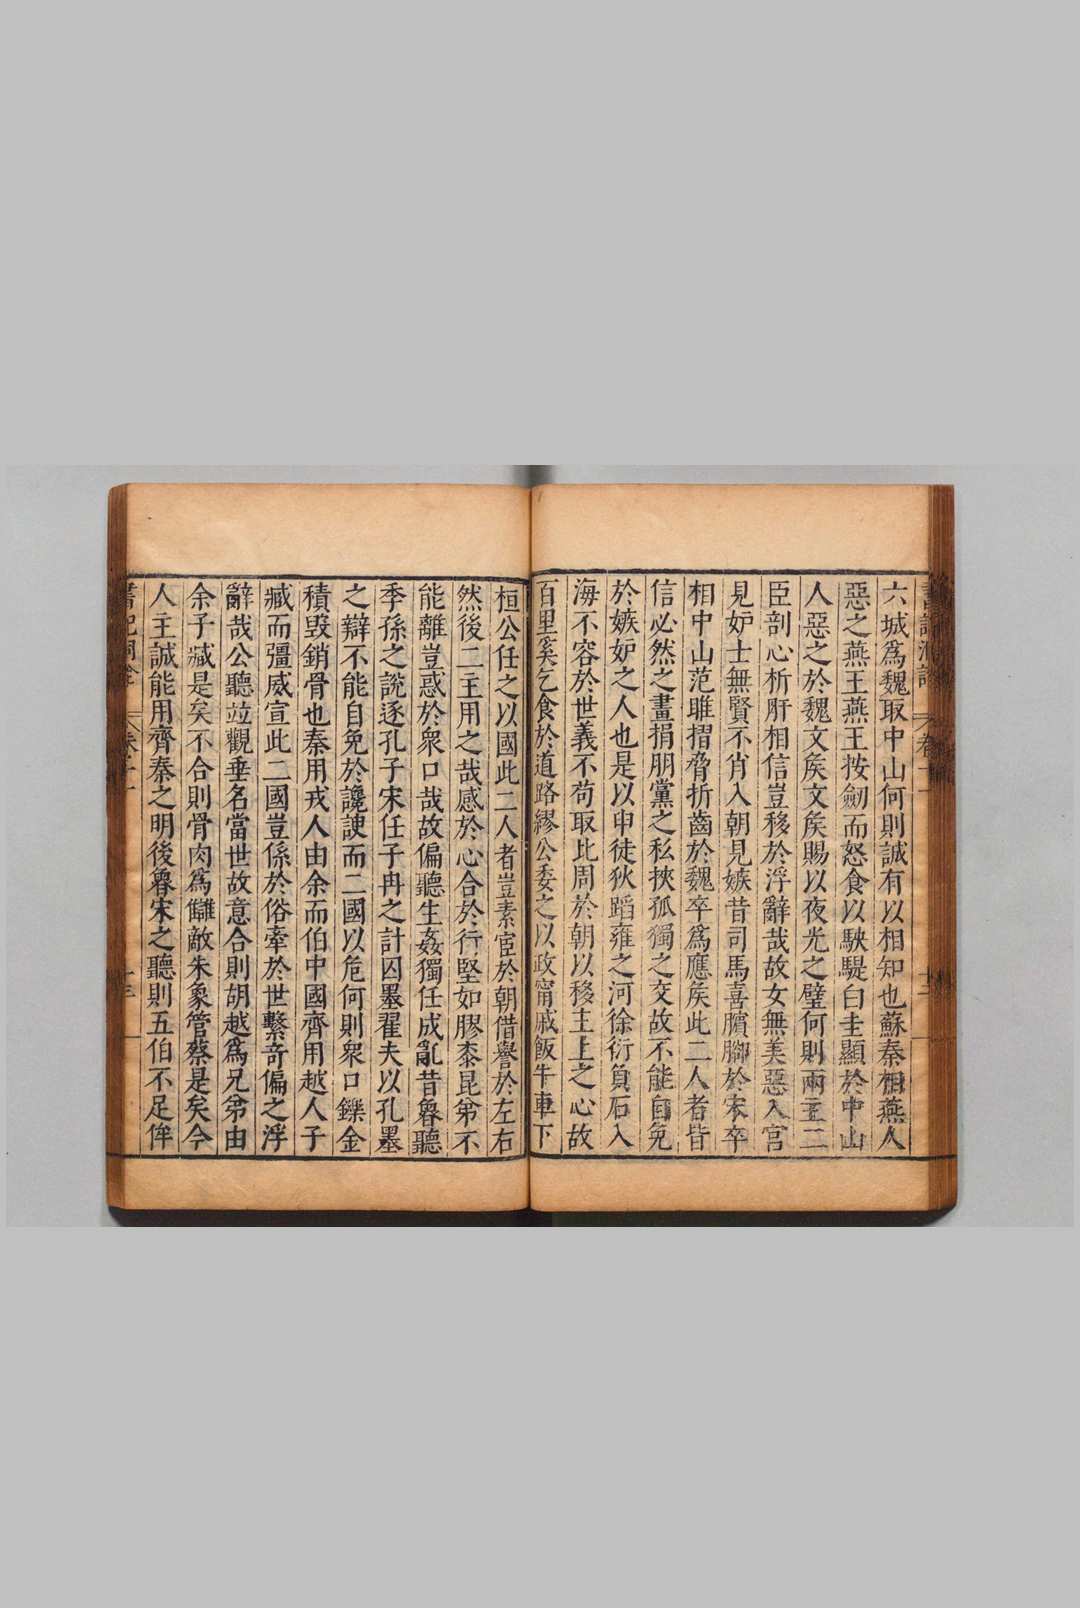 六城為魏取中山何則誠有以相知也蘇秦相燕人
惡之燕王燕王按劒而怒食以駃騠白圭顯於中山
人惡之於魏文矦文矦賜以夜光之璧何則兩主二
臣剖心析肝相信豈移於浮辭哉故女無美惡入宮
見妒士無賢不肖入朝見嫉昔司馬喜臏腳於宋卒
相中山范雎摺脅折齒於魏卒為應矦此二人者皆
信必然之畫捐朋黨之私挾孤獨之交故不能自免
於嫉妒之人也是以申徒狄蹈雍之河徐衍負石入
海不容於世義不苟取比周於朝以移主上之心故
百里奚乞食於道路繆公委之以政甯戚飯牛車下
桓公任之以國此二人者豈素宦於朝借譽於左右
然後二主用之哉感於心合於行堅如膠桼昆弟不
能離豈惑於衆口哉故偏聽生姦獨任成亂昔魯聽
季孫之說逐孔子宋任子冉之計囚墨翟夫以孔墨
之辯不能自免於讒諛而二國以危何則衆口鑠金
積毀銷骨也秦用戎人由余而伯中國齊用越人子
臧而彊威宣此二國豈係於俗牽於世繫奇偏之浮
辭哉公聽竝觀垂名當世故意合則胡越為兄弟由
余子臧是矣不合則骨肉為讎敵朱象管蔡是矣今
人主誠能用齊秦之明後魯宋之聽則五伯不足侔